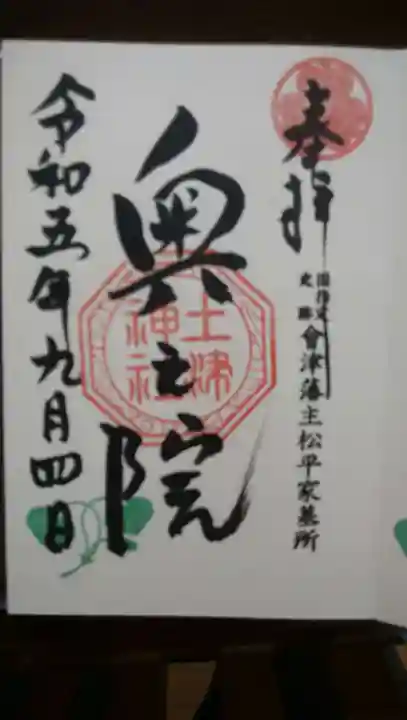 奉拝
国指定
史跡
會津藩主松平家墓所
奥之院
土津
神社
令和五年九月四日